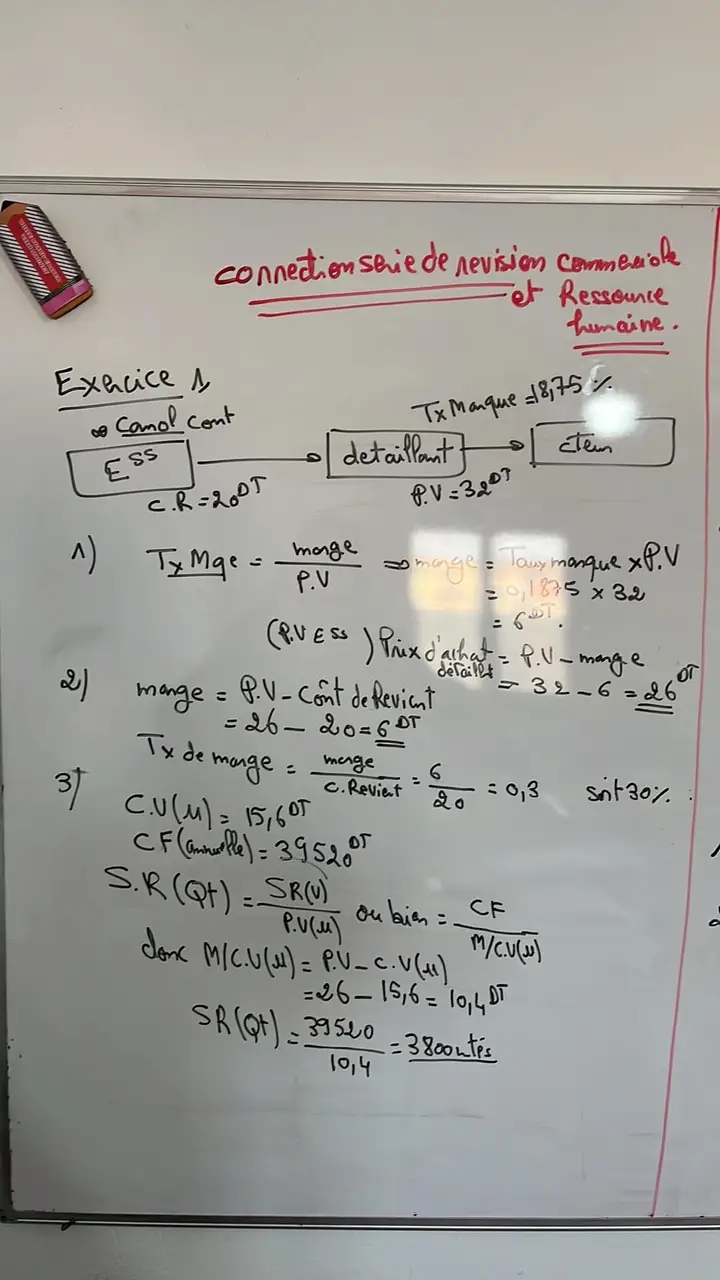 connection serie de revision commerciale
et Ressource
humaine.
Exercice 1
Canal cont
Tx Marque = 18,75 %
Ess
detaillant
cteur
C.R = 20 DT
P.V = 32 DT
1) Tx Mqe = marge / P.V ⇒ marge = Taux marque x P.V
= 0,1875 x 32
= 6 DT.
(P.V Ess) Prix d'achat détaillt = P.V – marge
= 32 – 6 = 26 DT
2) marge = P.V – Coût de Revient
= 26 – 20 = 6 DT
Tx de marge = marge / C.Revient = 6 / 20 = 0,3 soit 30%.
3) C.V(u) = 15,6 DT
CF (annuelle) = 39520 DT
S.R (Qt) = SR(V) / P.V(u) ou bien = CF / M/C.V(u)
donc M/C.V(u) = P.V – C.V(u)
= 26 – 15,6 = 10,4 DT
SR(Qt) = 39520 / 10,4 = 3800 utés